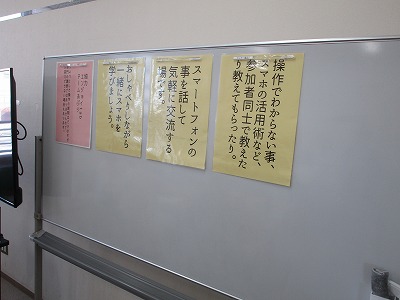 操作でわからない事、
スマホの活用術など、
参加者同士で教えた
り教えてもらったり。
スマートフォンの
事を話して
気軽に交流する
場です。
おしゃべりしながら
一緒にスマホを
学びましょう。